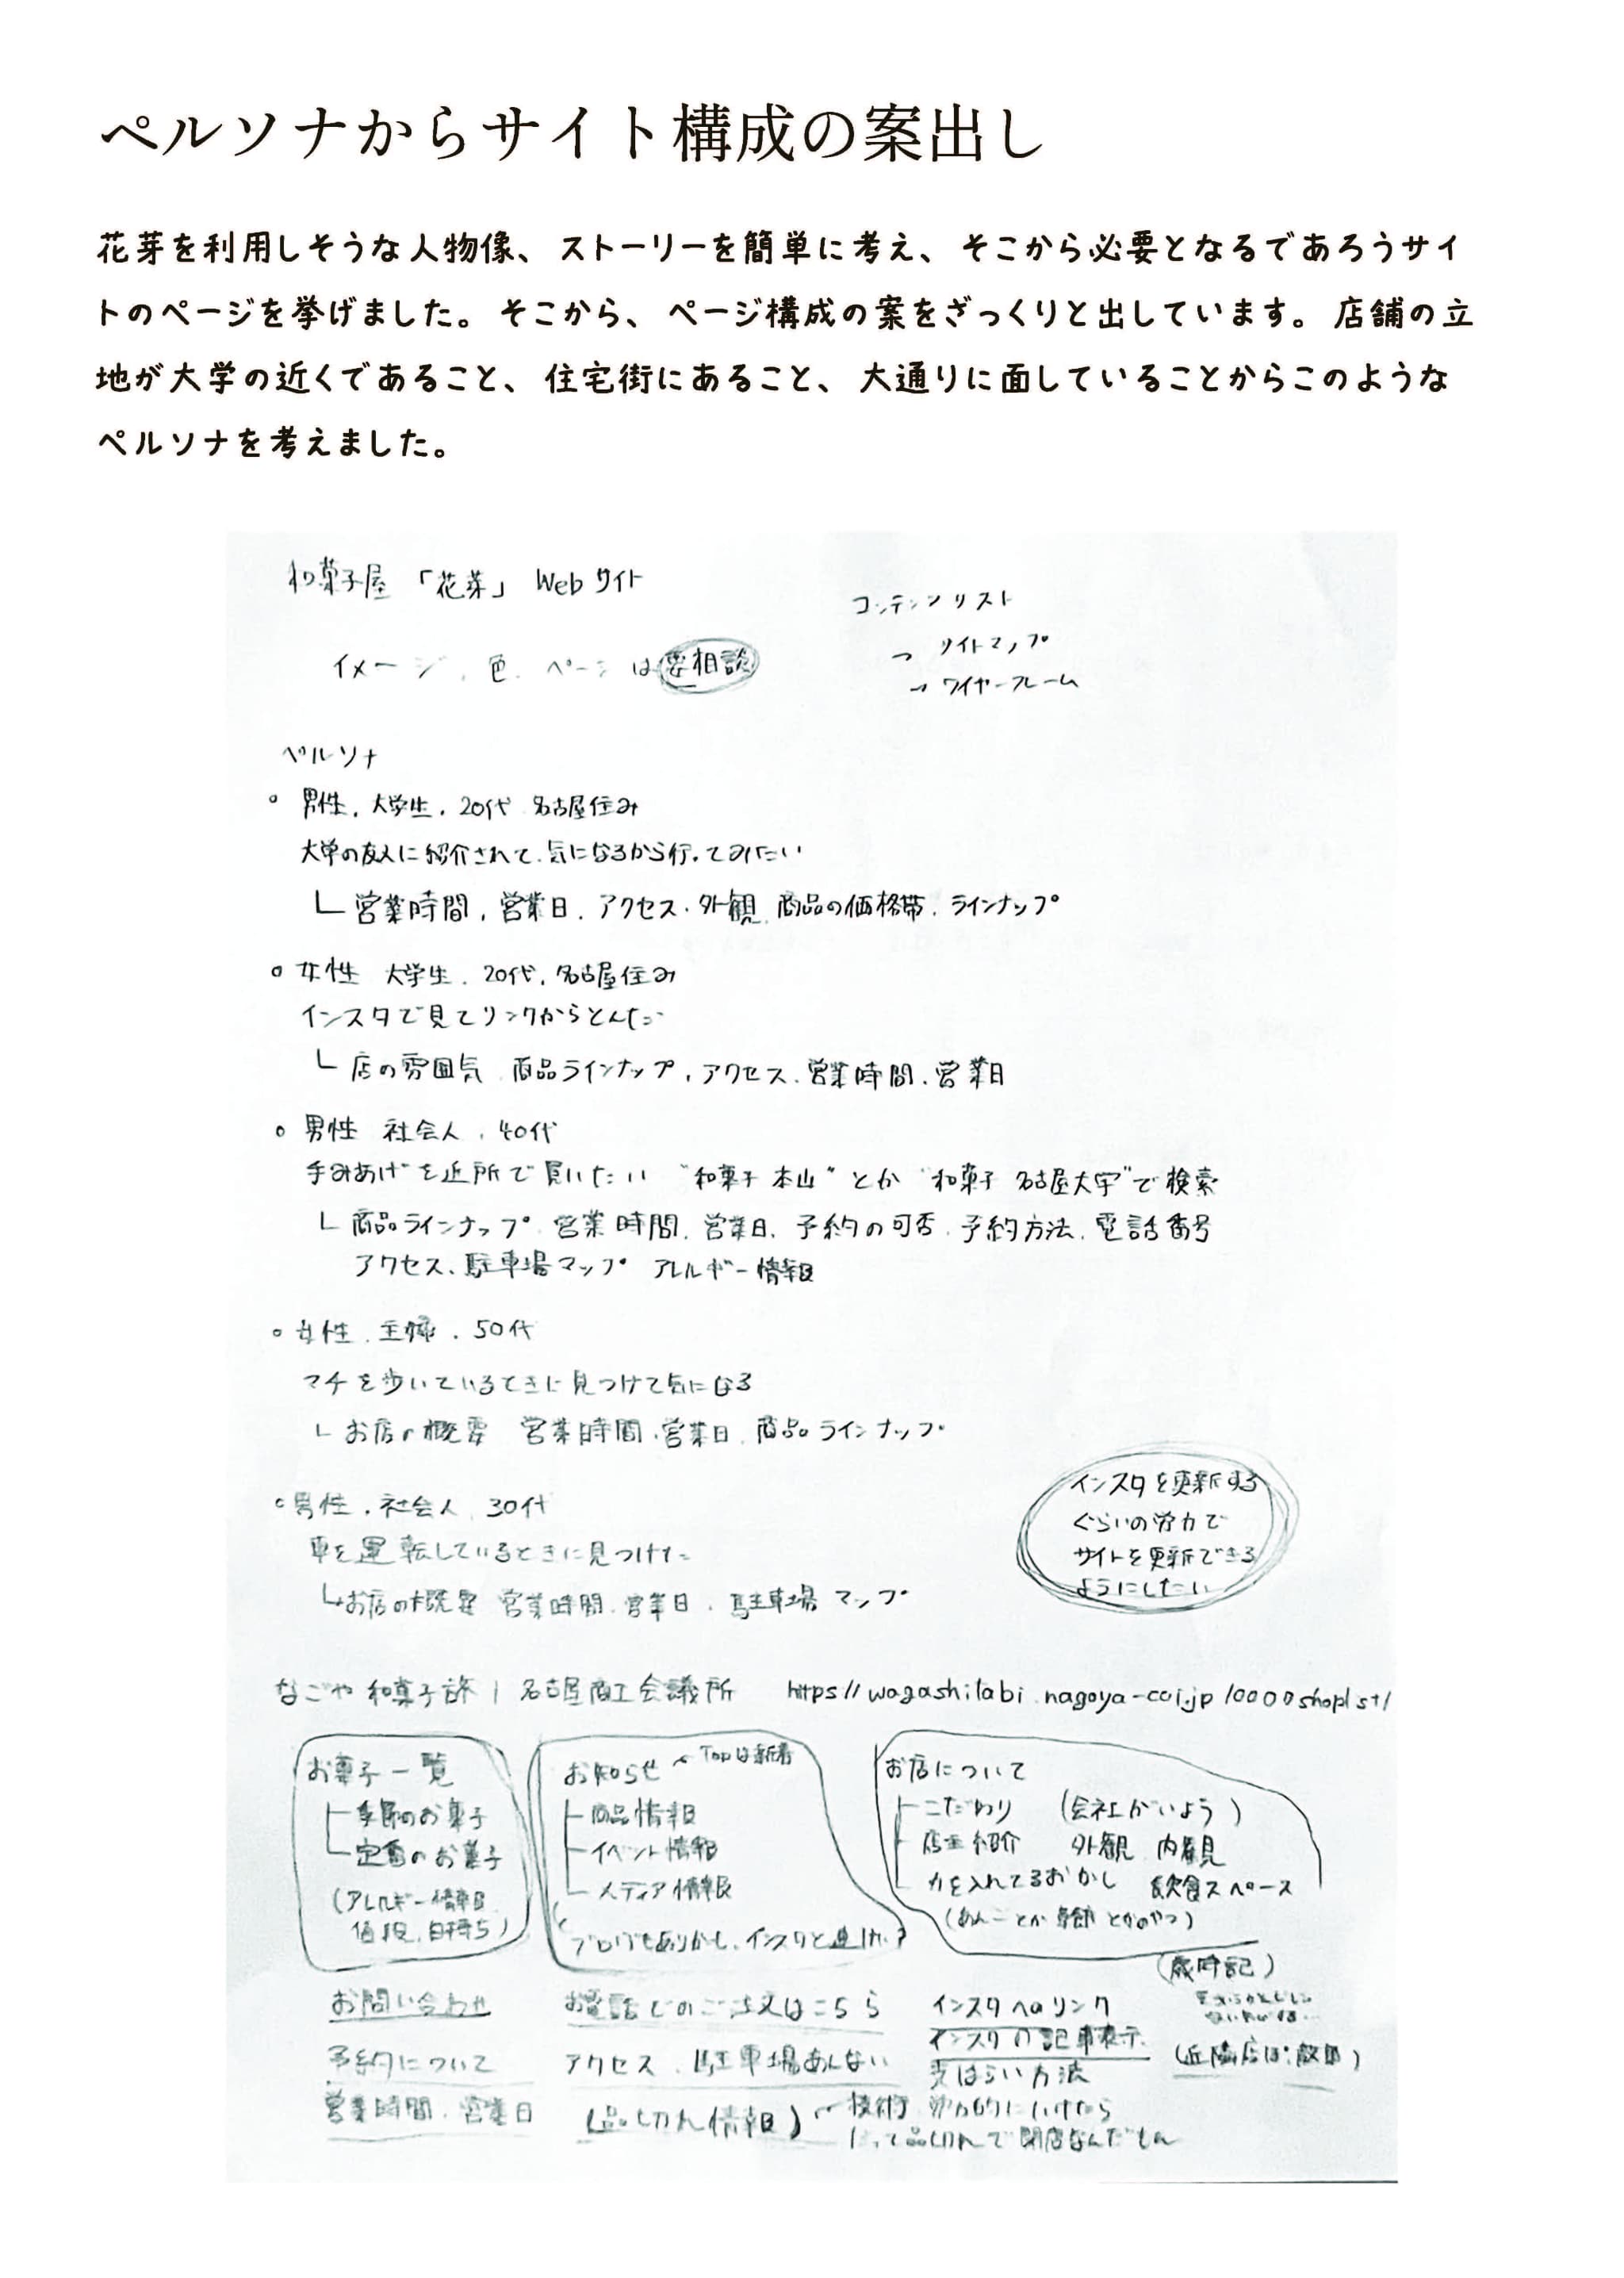 ペルソナからサイト構成の案出し
花芽を利用しそうな人物像、ストーリーを簡単に考え、そこから必要となるであろうサイ
トのページを挙げました。そこから、ページ構成の案をざっくりと出しています。店舗の立
地が大学の近くであること、住宅街にあること、大通りに面していることからこのような
ペルソナを考えました。
和菓子屋「花芽」Webサイト
イメージ、色、ページは要相談
コンテンツリスト
→ サイトマップ
→ ワイヤーフレーム
ペルソナ
○ 男性、大学生、20代 名古屋住み
大学の友人に紹介されて、気になるから行ってみたい
└ 営業時間、営業日、アクセス・外観、商品の価格帯、ラインナップ
○ 女性 大学生、20代、名古屋住み
インスタで見てリンクからとんだ
└ 店の雰囲気、商品ラインナップ、アクセス、営業時間、営業日
○ 男性 社会人、40代
手みあげを近所で買いたい “和菓子 本山”とか“和菓子 名古屋大学”で検索
└ 商品ラインナップ、営業時間、営業日、予約の可否、予約方法、電話番号
アクセス、駐車場マップ アレルギー情報
○ 女性、主婦、50代
マチを歩いているときに見つけて気になる
└ お店の概要 営業時間、営業日、商品ラインナップ
○ 男性、社会人、30代
車を運転しているときに見つけた
└ お店の概要 営業時間、営業日、駐車場マップ
インスタを更新する
ぐらいの労力で
サイトを更新できる
ようにしたい
なごや和菓子旅 | 名古屋商工会議所 https://wagashitabi.nagoya-cci.jp/0000shoplist/
お菓子一覧
├ 季節のお菓子
└ 定番のお菓子
(アレルギー情報、
値段、日持ち)
お知らせ ← Topは新着
├ 商品情報
├ イベント情報
└ メディア情報
ブログもありかも、インスタと
お店について
├ こだわり (会社がいよう)
├ 店主紹介 外観 内観
└ 力を入れてるおかし 飲食スペース
(あんことか季節とかのやつ)
(歳時記)
お問い合わせ
お電話でのご注文はこちら
インスタへのリンク
インスタの記事表示
予約について
アクセス、駐車場あんない
支はらい方法
営業時間、営業日
(品切れ情報)
技術、労力的にいけたら
品切れで閉店なんだもん